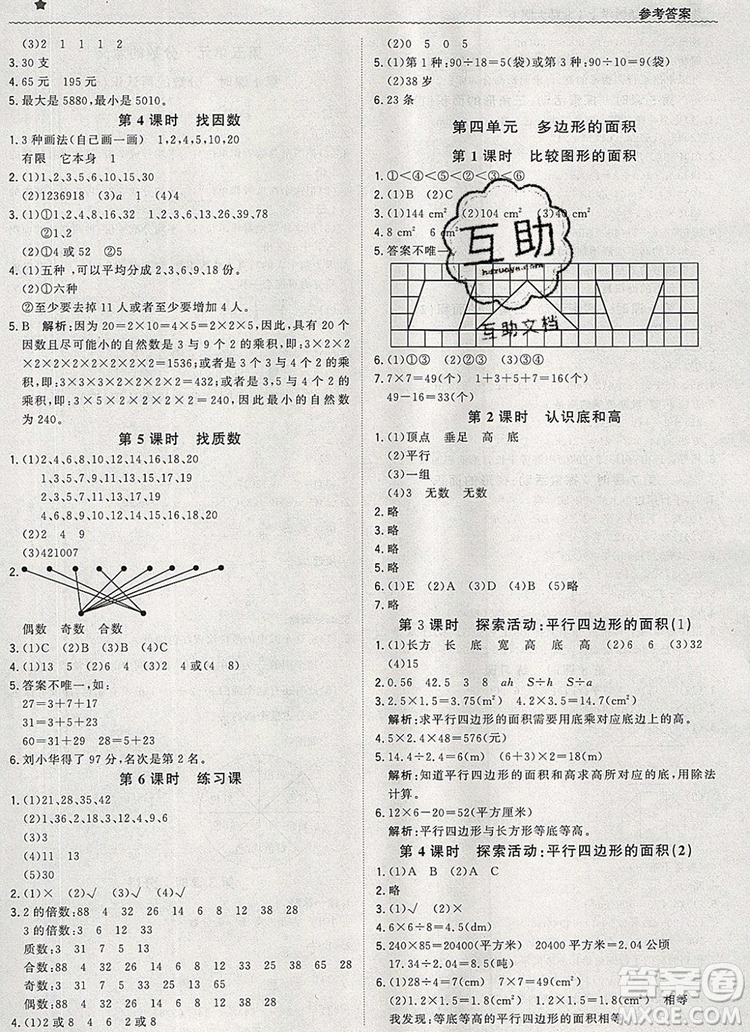 参考答案
(3)2 1 1 1 2
3.30 支
4.65 元 195 元
5.最大是 5880,最小是 5010。
第 4 课时 找因数
1.3 种画法(自己画一画) 1,2,4,5,10,20
有限 它本身 1
2.(1)1,2,4,5,10,20
(2)1236918 (3)a 1 (4)4
3.(1)①1,2,4,8,16,32 ②1,2,3,6,13,26,39,78
(2)①4 或 52 ②5
4.(1)①五种,可以平均分成 2、3、6、9、18 份。
②至少要去掉 11 人或至少增加 4 人。
(2)①六种
5.B 解析:因为 20=2×10=4×5=2×2×5,因此,具有 20 个
因数且尽可能小的自然数是 3 与 9 个 2 的乘积,即:3×2×
2×2×2×2×2×2×2×2=1536;或者是 3 个 3 与 4 个 2 的乘
积,即:3×3×3×2×2×2×2=432;或者是 3,5 与 4 个 2 的
乘积,即:3×5×2×2×2×2=240;因此最小的自然数
为 240。
第 5 课时 找质数
1.(1)2,4,6,8,10,12,14,16,18,20
1,3,5,7,9,11,13,15,17,19
2,3,5,7,11,13,17,19
4,6,8,9,10,12,14,15,16,18,20
(2)2 4 9
(3)421007
2.
偶数 奇数 合数
3.(1)C (2)B (3)C (4)C
4.(1)13 (2)5 (3)2 (4)2(或 4 8)
5.答案不唯一,如:
27=3+7+17
31=3+11+17
60=29+31
28=5+23
6.刘小华得了 97 分,名次是第 2 名。
第 6 课时 练习课
1.(1)21,28,35,42
(2)1,2,3,4,6,9,12,18,36
(3)3
(4)11 13
(5)30
2.(1)× (2)√ (3)√
3.2 的倍数:88 4 32 4 6 8 10 12 38 28
3 的倍数:3 6 12 33
质数:3 31 5 37
合数:88 4 32 4 6 8 10 12 33 38 65 28
奇数:3 31 5 33 65 37
偶数:88 4 32 4 6 8 10 12 38 28
4.(1)2 或 5 或 8 (2)4 或 8
(2)0 5 0 5
5.(1)第 1 种:90÷18=5(袋)或第 3 种:90÷10=9(袋)
(2)38 岁
6.23 条
第四单元 多边形的面积
第 1 课时 比较图形的面积
1.①<④<⑤<②<⑥
2.(1)B (2)C
3.(1)144 cm² (2)104 cm² (3)40 cm²
4.8 cm² 6
5.答案不唯一
互助
互助文档
6.(1)①③ (2)①③ (3)②④
7.7×7=49(个) 1+3+5+7=16(个)
49-16=33(个)
第 2 课时 认识底和高
1.(1)顶点 垂足 高 底
(2)平行
(3)一组
(4)3 无数 无数
2.略
3.略
4.略
5.略
6.(1)E (2)A (3)D (4)B
第 3 课时 探索活动:平行四边形的面积(1)
1.(1)长方 长 底 宽 高 底 高 (2)6 (3)32
(4)15
2.0.56 42.5 3 8 ah S÷h S÷a
3.2.5×1.5=3.75(m²) 4.2×1.5=6.3(cm²)
解析:求平行四边形的面积需要用底乘对应底边上的高。
4.5×2.4×48=576(元)
5.14.4÷2=7.2(m) (6+3)÷6=1.5(cm)
解析:知道平行四边形的面积和高求高所对应的底,用除法
计算。
6.12×6-20=52(平方厘米)
解析:平行四边形与长方形等底等高。
第 4 课时 探索活动:平行四边形的面积(2)
1.(1)A (2)D A C
2.略
3.(1)√ (2)×
4.6×6÷8=4.5(dm)
5.240×85=20400(平方米) 20400 平方米=2.04 公顷
17.34÷2.04=8.5(吨)
6.(1)28÷7=4(cm) 12÷4=3(cm)
(2)1.2×2=2.4(cm²) 1.2×2=2.4(cm²) 相等
我发现:等底等高的平行四边形的面积相等。
答案圈
MXQE.COM